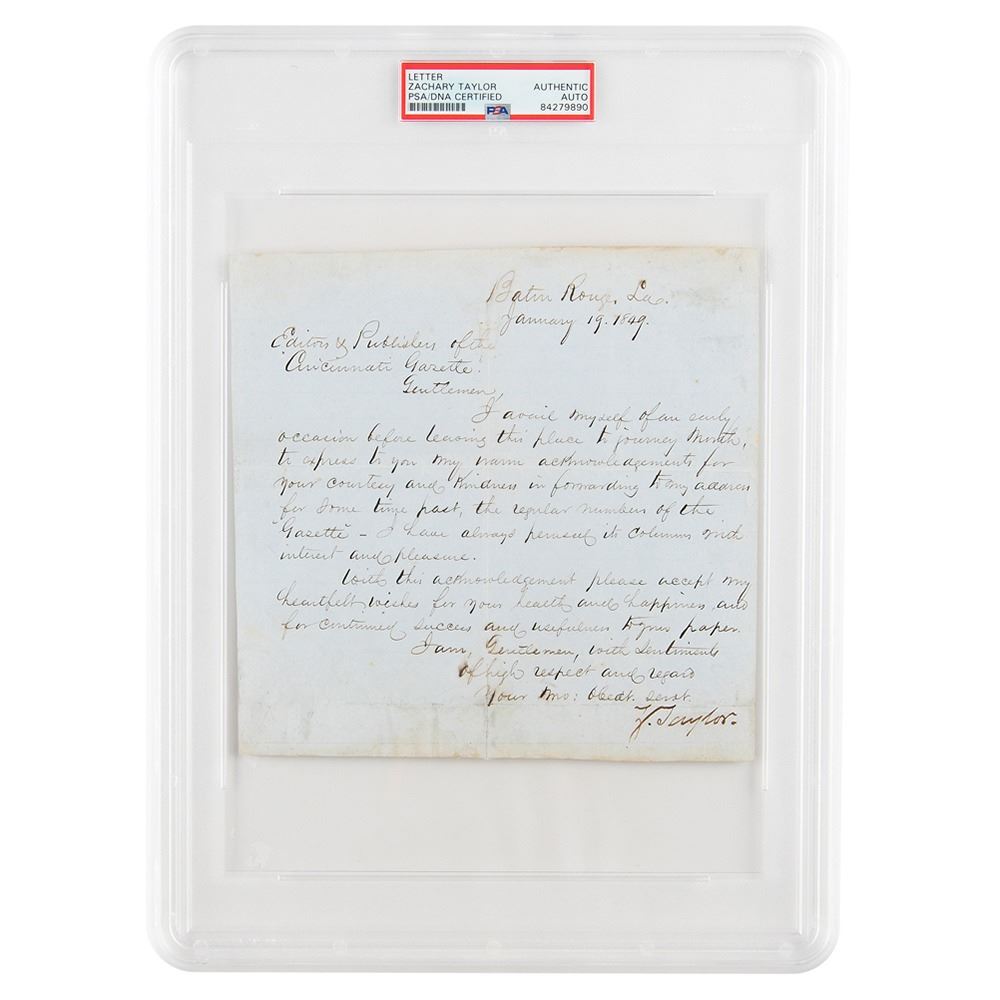 LETTER
ZACHARY TAYLOR
PSA/DNA CERTIFIED
AUTHENTIC
AUTO
84279890
PSA
Baton Rouge, La.
January 19. 1849.
Editors & Publishers of the
"Cincinnati Gazette."
Gentlemen,
I avail myself of an early
occasion before leaving this place to journey North,
to express to you my warm acknowledgements for
your courtesy and kindness in forwarding to my address
for some time past, the regular numbers of the
"Gazette" - I have always perused its columns with
interest and pleasure.
With this acknowledgement please accept my
heartfelt wishes for your health and happiness, and
for continued success and usefulness to your paper.
I am, Gentlemen, with sentiments
of high respect and regard
Your mo: obedt. servt.
Z. Taylor.